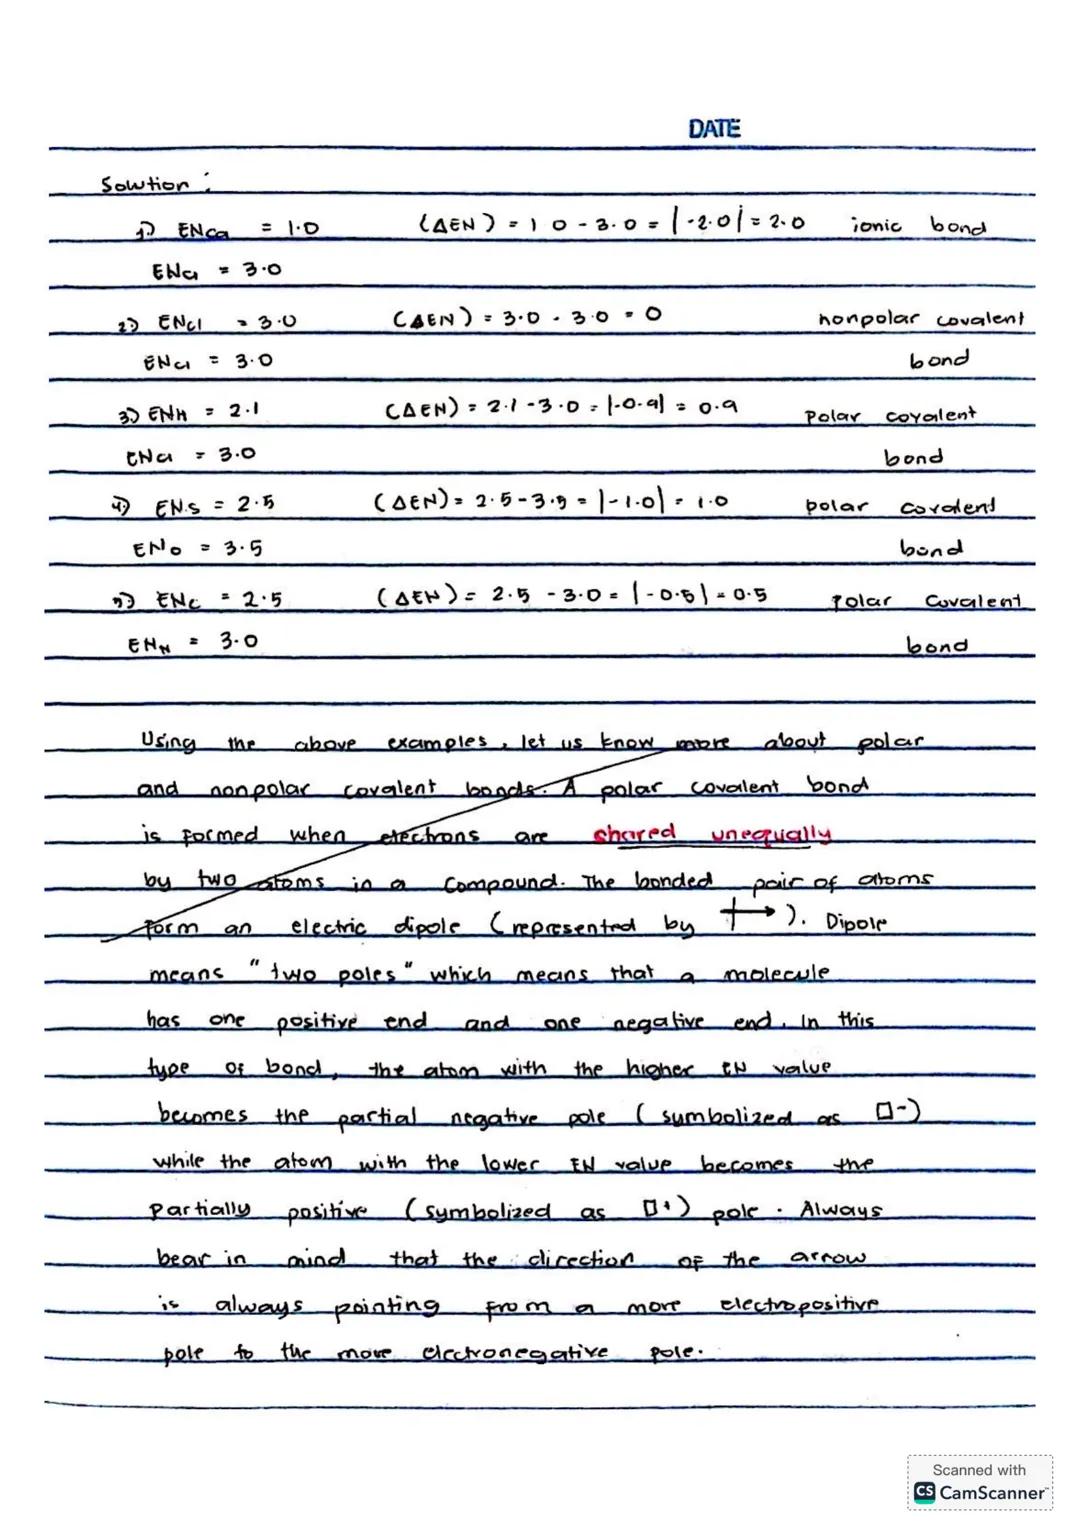 DATE
Solution :
1) ENca = 1.0 (ΔEN) = 1 0 - 3.0 = |-2.0| = 2.0 ionic bond
ENcl = 3.0
2) ENcl = 3.0 (ΔEN) = 3.0 - 3.0 = 0 nonpolar covalent
ENcl = 3.0 bond
3) ENH = 2.1 (ΔEN) = 2.1 - 3.0 = |-0.9| = 0.9 Polar covalent
ENcl = 3.0 bond
4) ENS = 2.5 (ΔEN) = 2.5 - 3.5 = |-1.0| = 1.0 polar covalent
ENO = 3.5 bond
5) ENC = 2.5 (ΔEN) = 2.5 - 3.0 = |-0.5| = 0.5 Polar Covalent
ENN = 3.0 bond
Using the above examples, let us know more about polar
and nonpolar covalent bonds. A polar covalent bond
is formed when electrons are shared unequally
by two atoms in a compound. The bonded pair of atoms
form an electric dipole (represented by ⟼). Dipole
means "two poles" which means that a molecule
has one positive end and one negative end. In this
type of bond, the atom with the higher EN value
becomes the partial negative pole (symbolized as □-)
while the atom with the lower EN value becomes the
partially positive (symbolized as □+) pole. Always
bear in mind that the direction of the arrow
is always pointing from a more electropositive
pole to the more electronegative pole.
Scanned with
CS CamScanner